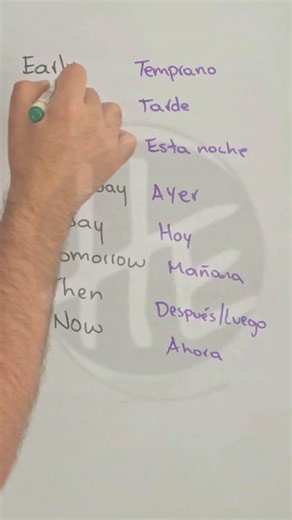 Early Temprano
Tarde
Esta noche
Ayer
Hoy
Tomorrow Mañana
Then Después/Luego
Now Ahora